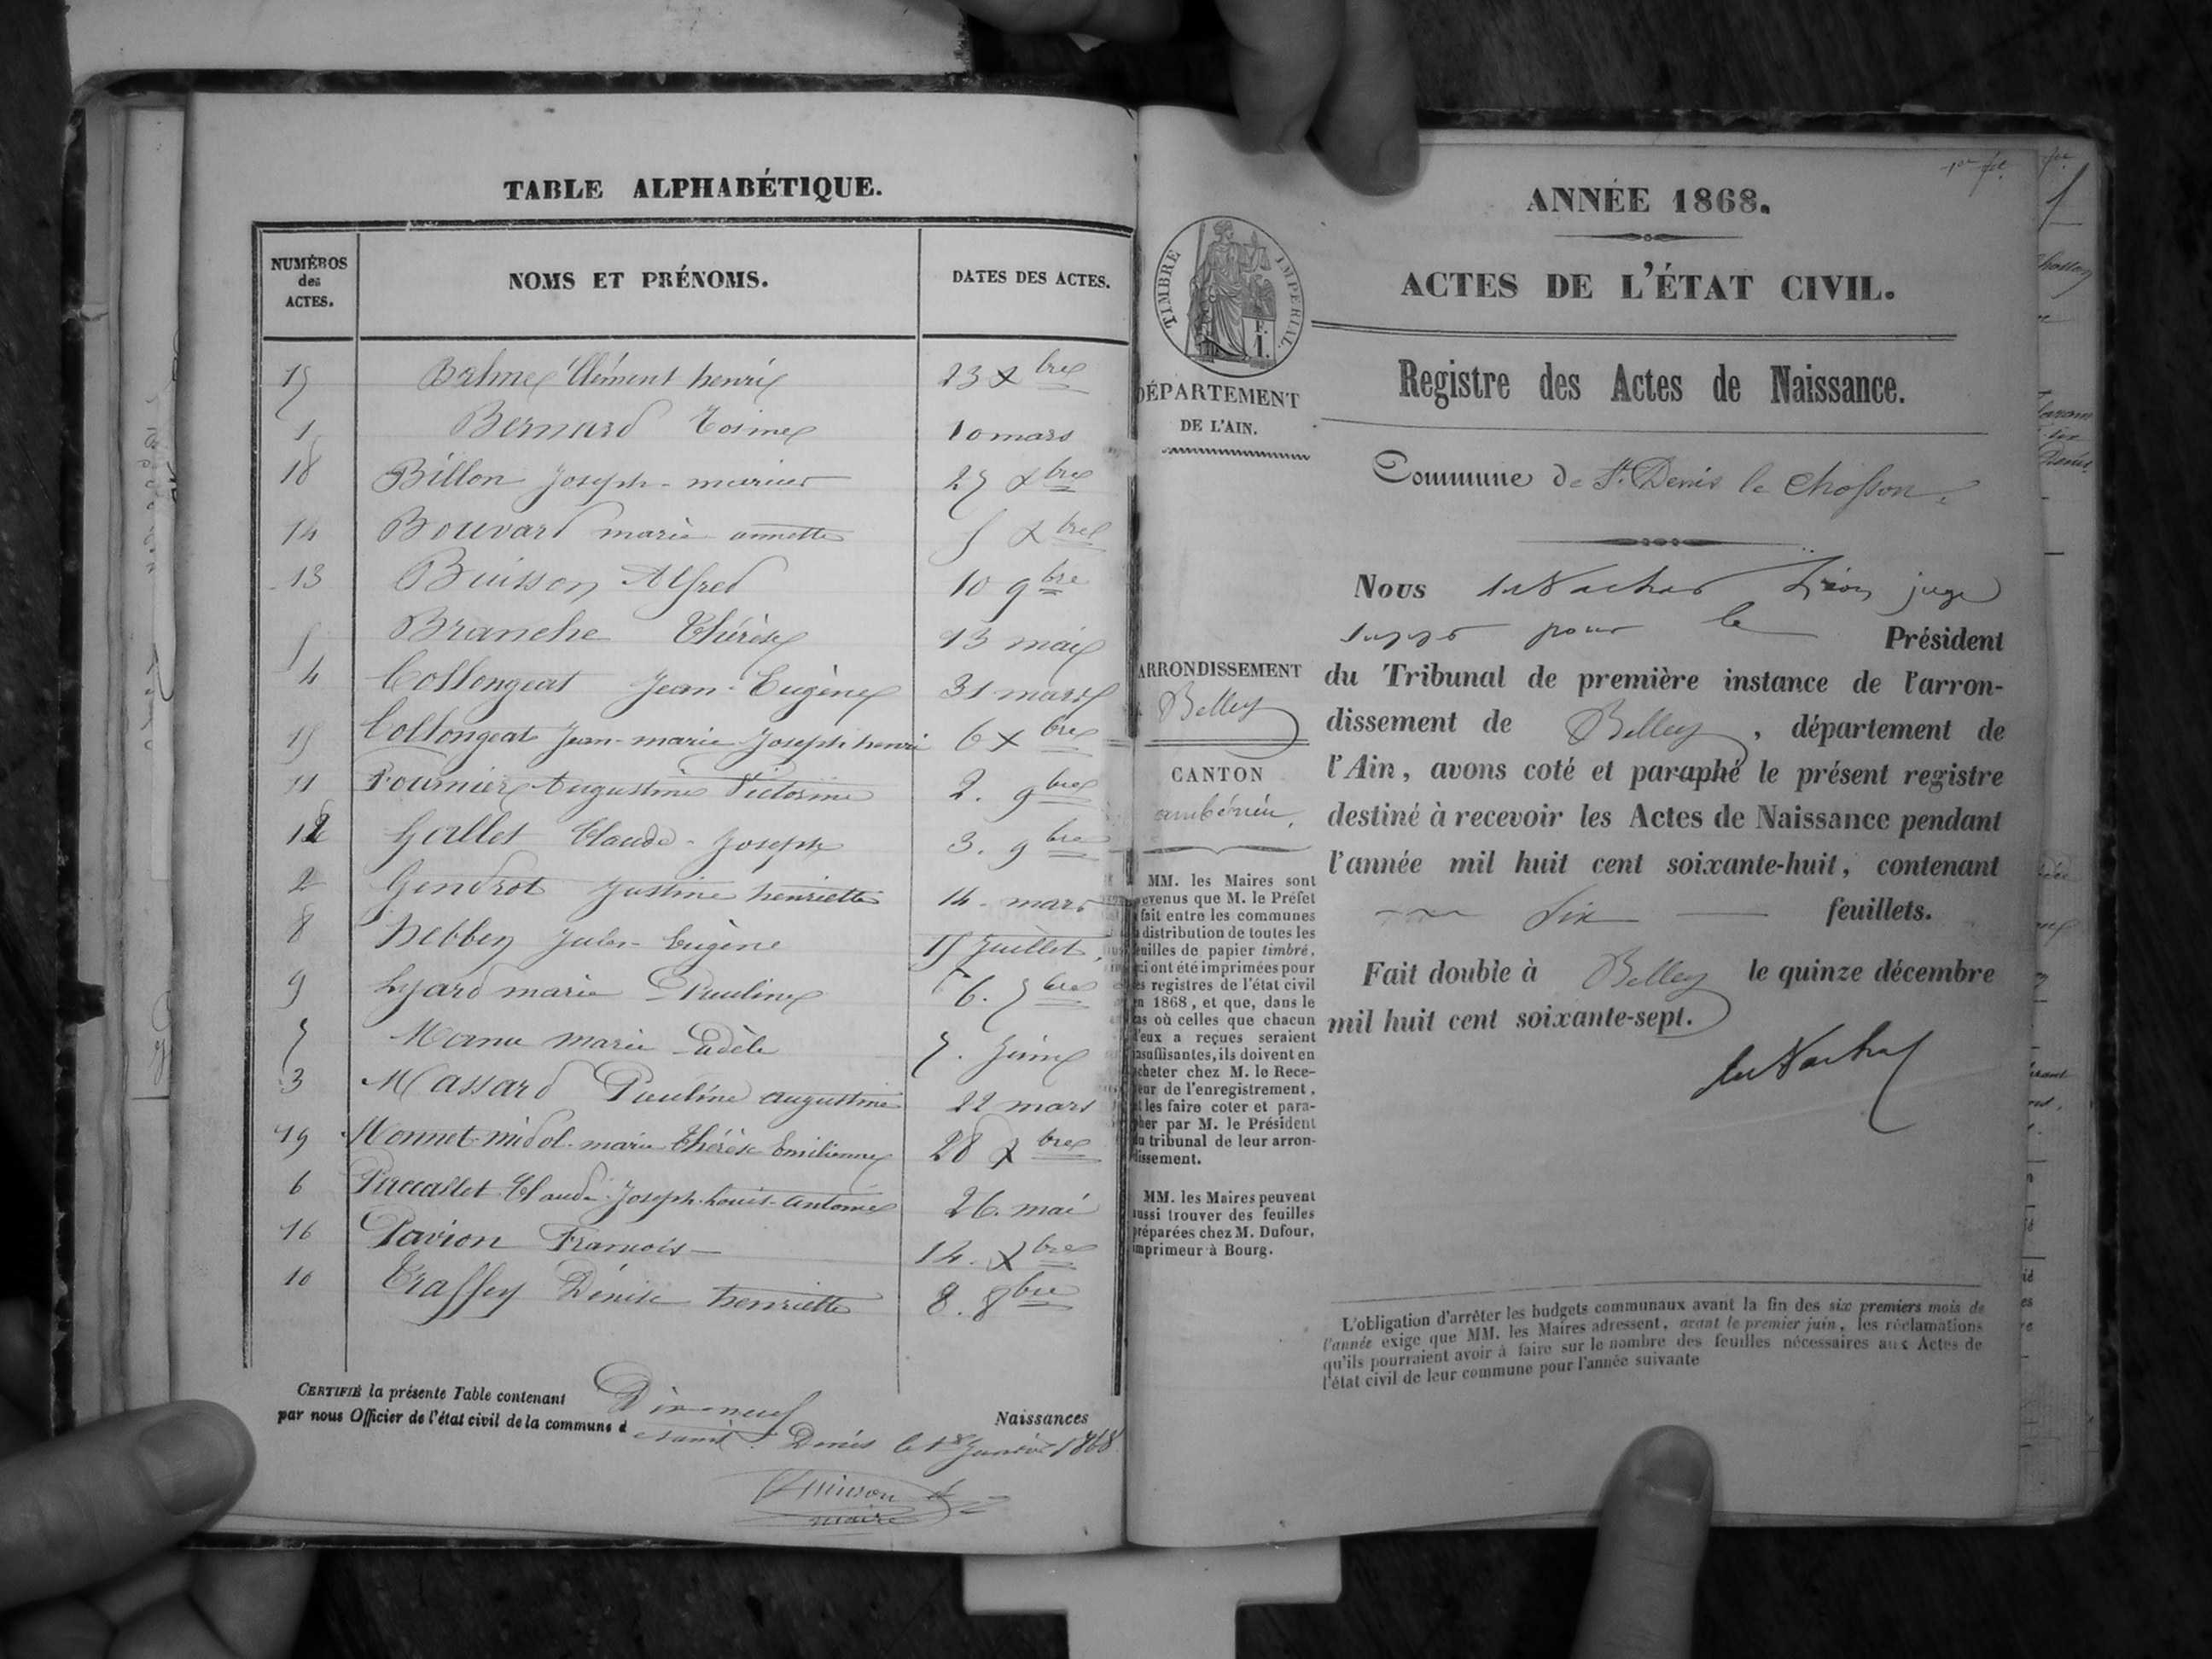 TABLE ALPHABÉTIQUE.
NUMÉROS des ACTES.
NOMS ET PRÉNOMS.
DATES DES ACTES.
Clément henri 23 Xbre
1 Bernard 10 mars
18 Billon Joseph-marius 27 Xbre
14 Bouvard marie annette 5 Xbre
13 Buisson Alfred 10 9bre
5 Branche Thérèse 13 mai
4 Collongeat Jean-Eugène 31 mars
15 Collongeat Jean-marie-Joseph henri 6 Xbre
11 Fournier Augustine Victorine 2. 9bre
12 Gallet Claude-Joseph 3. 9bre
2 Gendrot Justine henriette 14. mars
8 Jules-Eugène 15 Juillet
9 Lyard marie Pauline 6. 7bre
7 Manu marie Adèle 7. Juin
3 Massard Pauline augustine 22 mars
19 Monnet-midol-marie Thérèse Emilienne 28 Xbre
6 Claude-Joseph-Louis-Antoine 26. mai
16 Pavion François 14. Xbre
10 Traffey Dénise henriette 8. 8bre
CERTIFIÉ la présente Table contenant Dix-neuf Naissances
par nous Officier de l'état civil de la commune d
Saint. Denis le 1er Janvier 1868
maire
1er fet
ANNÉE 1868.
ACTES DE L'ÉTAT CIVIL.
Registre des Actes de Naissance.
TIMBRE IMPÉRIAL.
DÉPARTEMENT
DE L'AIN.
Commune de St. Denis le Chosson.
Nous Léon juge
pour le Président
du Tribunal de première instance de l'arron-
dissement de Belley, département de
l'Ain, avons coté et paraphé le présent registre
destiné à recevoir les Actes de Naissance pendant
l'année mil huit cent soixante-huit, contenant
Six feuillets.
Fait double à Belley le quinze décembre
mil huit cent soixante-sept.
ARRONDISSEMENT
Belley
CANTON
ambérieu.
MM. les Maires sont
evenus que M. le Préfet
fait entre les communes
distribution de toutes les
euilles de papier timbré,
ci ont été imprimées pour
es registres de l'état civil
n 1868, et que, dans le
as où celles que chacun
d'eux a reçues seraient
nsuffisantes, ils doivent en
cheter chez M. le Rece-
eur de l'enregistrement,
t les faire coter et para-
her par M. le Président
u tribunal de leur arron-
issement.
MM. les Maires peuvent
ussi trouver des feuilles
préparées chez M. Dufour,
mprimeur à Bourg.
L'obligation d'arrêter les budgets communaux avant la fin des six premiers mois de
l'année exige que MM. les Maires adressent, avant le premier juin, les réclamations
qu'ils pourraient avoir à faire sur le nombre des feuilles nécessaires aux Actes de
l'état civil de leur commune pour l'année suivante